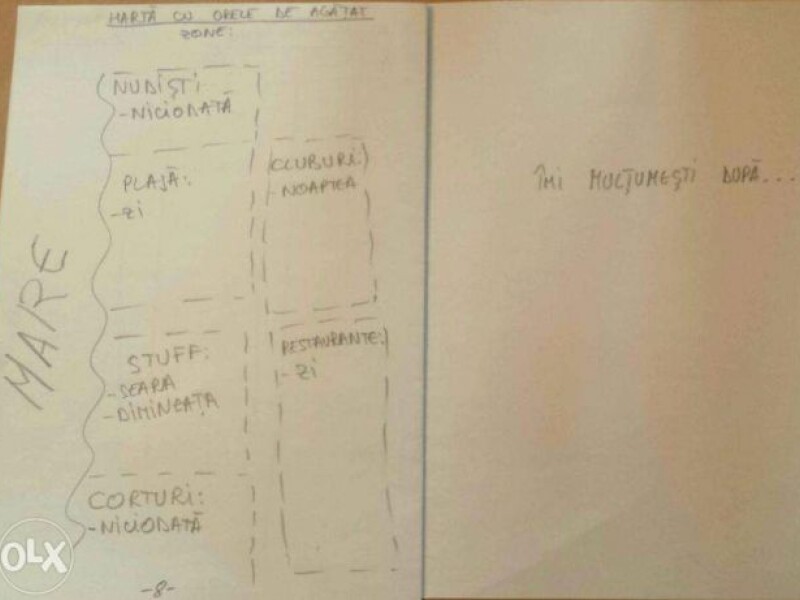 HARTĂ CU ORELE DE AGĂȚAT
ZONE:
NUDIȘTI
-NICIODATĂ
PLAJĂ:
-ZI
CLUBURI:
-NOAPTEA
MARE
STUFF:
-SEARA
-DIMINEAȚA
RESTAURANTE:
-ZI
CORTURI:
-NICIODATĂ
-8-
ÎMI MULȚUMEȘTI DUPĂ...
OLX